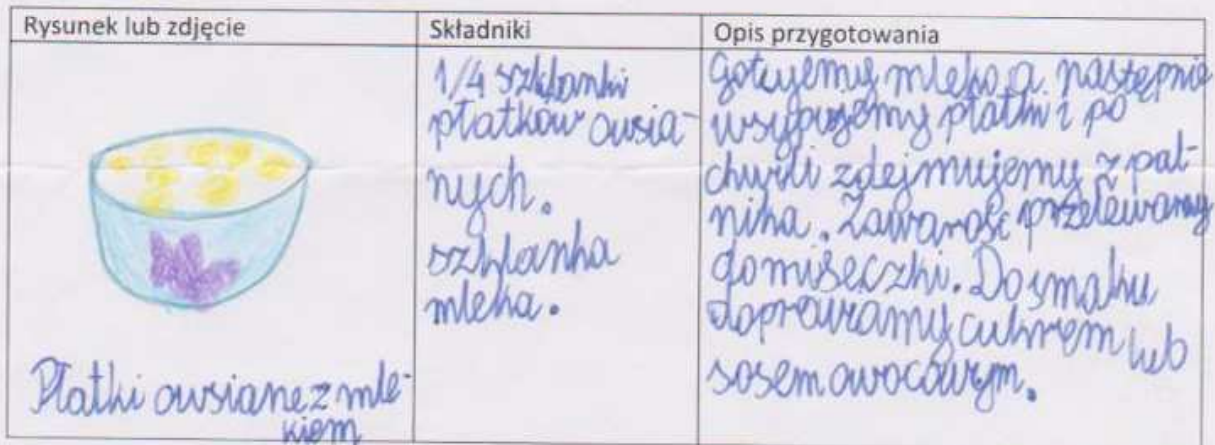 Rysunek lub zdjęcie
Składniki
Opis przygotowania
Płatki owsiane z mle-
kiem
1/4 szklanki
płatków owsia-
nych.
szklanka
mleka.
gotujemy mleko a następnie
wsypujemy płatki i po
chwili zdejmujemy z pal-
nika. Zawarość przelewamy
do miseczki. Do smaku
doprawiamy cukrem lub
sosem owocowym.